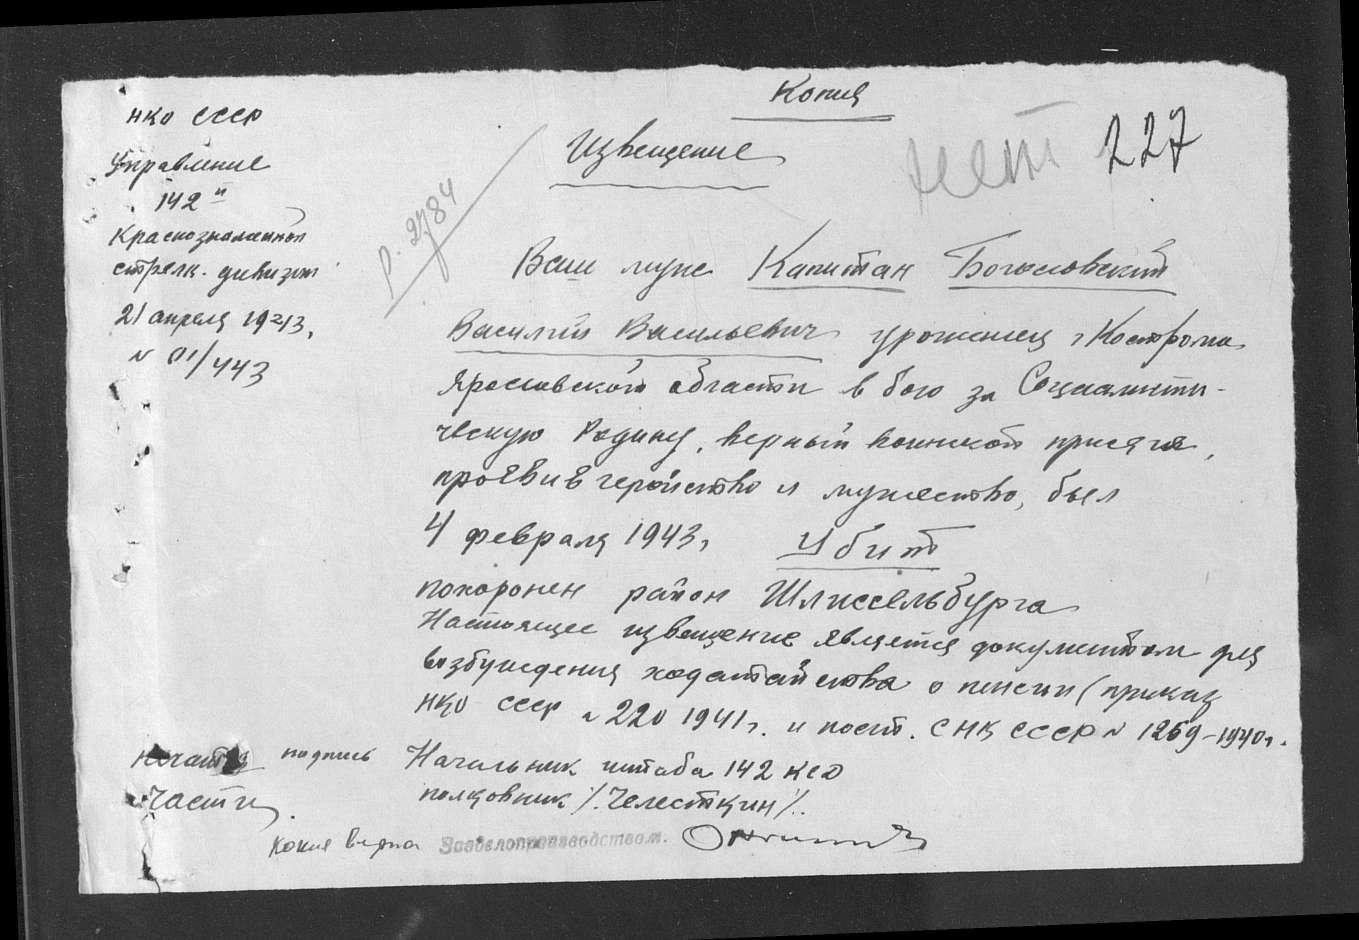 Копия
нко ссср
Управление
142й
Краснознаменной
стрелк. дивизии
21 апреля 1943г.
N 01/443
Р. 2784
нет
227
Извещение
Ваш муж Капитан Богословский
Василий Васильевич уроженец г Кострома
Ярославской области в бою за Социалисти-
ческую Родину, верный воинской присяге,
проявив геройство и мужество, был
4 февраля 1943г Убит
похоронен район Шлиссельбурга
Настоящее извещение является документом для
возбуждения ходатайства о пенсии (приказ
нко ссср N 220 1941г. и пост. СНК СССР N 1269-1940г.
печать подпись Начальник штаба 142 ксд
части полковник /. Челесткин /.
копия верна Завделопроизводством.